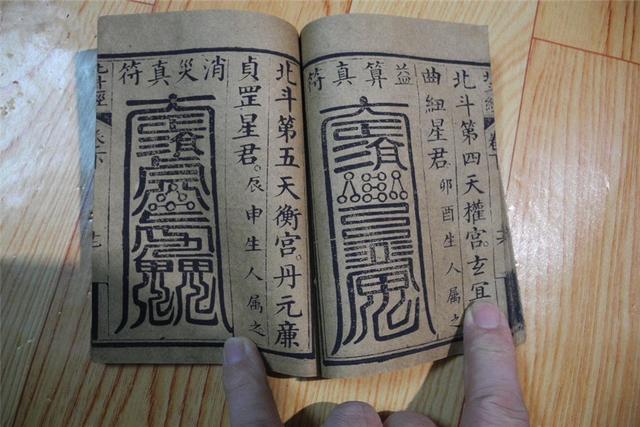 卷下
北斗第四天權宮。玄冥
曲紐星君。卯酉生人属之
益算真符
北斗第五天衡宮。丹元廉
貞罡星君。辰申生人属之
消災真符
北斗經
卷下